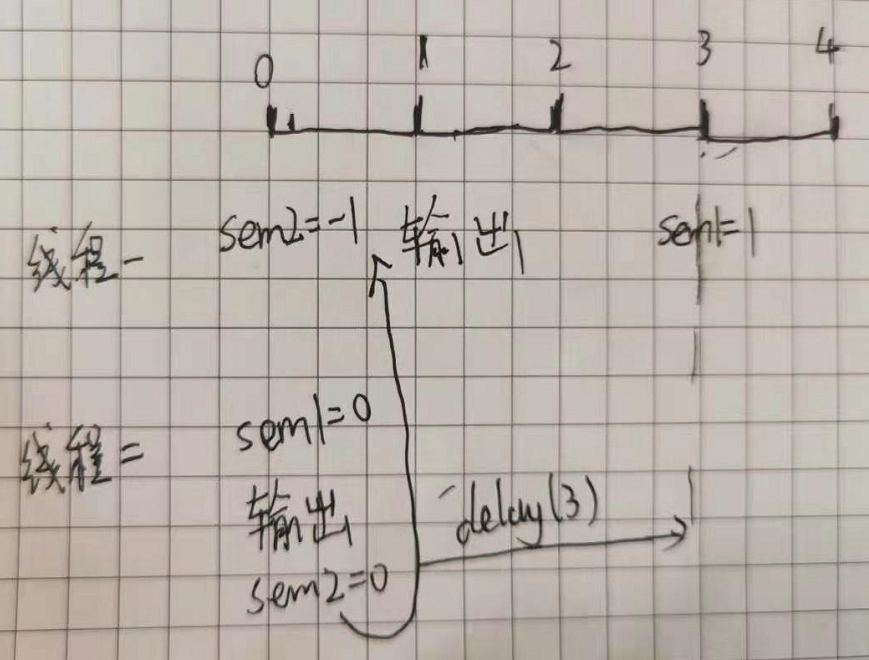 0 1 2 3 4
线程一 sem2=-1 输出1 sem1=1
线程二 sem1=0
输出1
delay(3)
sem2=0